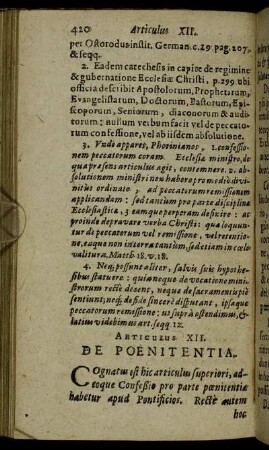 420 Articulus XII.
per Ostorodus instit. German. c. 29. pag. 207.
& seqq.
2. Eadem catechesis in capite de regimine
& gubernatione Ecclesiæ Christi, p. 299 ubi
officia describit Apostolorum, Prophetarum,
Evangelistarum, Doctorum, Pastorum, Epis-
coporum, Seniorum, diaconorum & audi-
torum; nullum verbum facit vel de peccato-
rum confessione, vel ab iisdem absolutione.
3. Unde apparet, Photinianos, 1. confessionem
peccatorum coram Ecclesiæ ministro, de
qua præsens articulus agit, contemnere. 2. ab-
solutionem ministri non habere pro medio divi-
nitus ordinato, ad peccatorum remissionem
applicandam: sed tantum pro parte disciplinæ
Ecclesiasticæ, 3. eamque perperam describere: ac
proinde depravare verba Christi: quæ loquun-
tur de peccatorum vel remissione, vel retentio-
ne, eaque non in terra tantum, sed etiam in cœlo
valitura. Matth. 18. v. 18.
4. Neq; possunt aliter, salvis suis hypothe-
sibus statuere: quia neque de vocatione mini-
strorum recte docent, neque de sacramentis piè
sentiunt; neq; de fide sincerè disputant, ipsaque
peccatorum remissione: ut supra ostendimus, &
latius videbimus art. seqq. 12.
ARTICULUS XII.
DE POENITENTIA.
Cognatus est hic articulus superiori, ad-
eoque Confessio pro parte pœnitentiæ
habetur apud Pontificios. Rectè autem
hoc